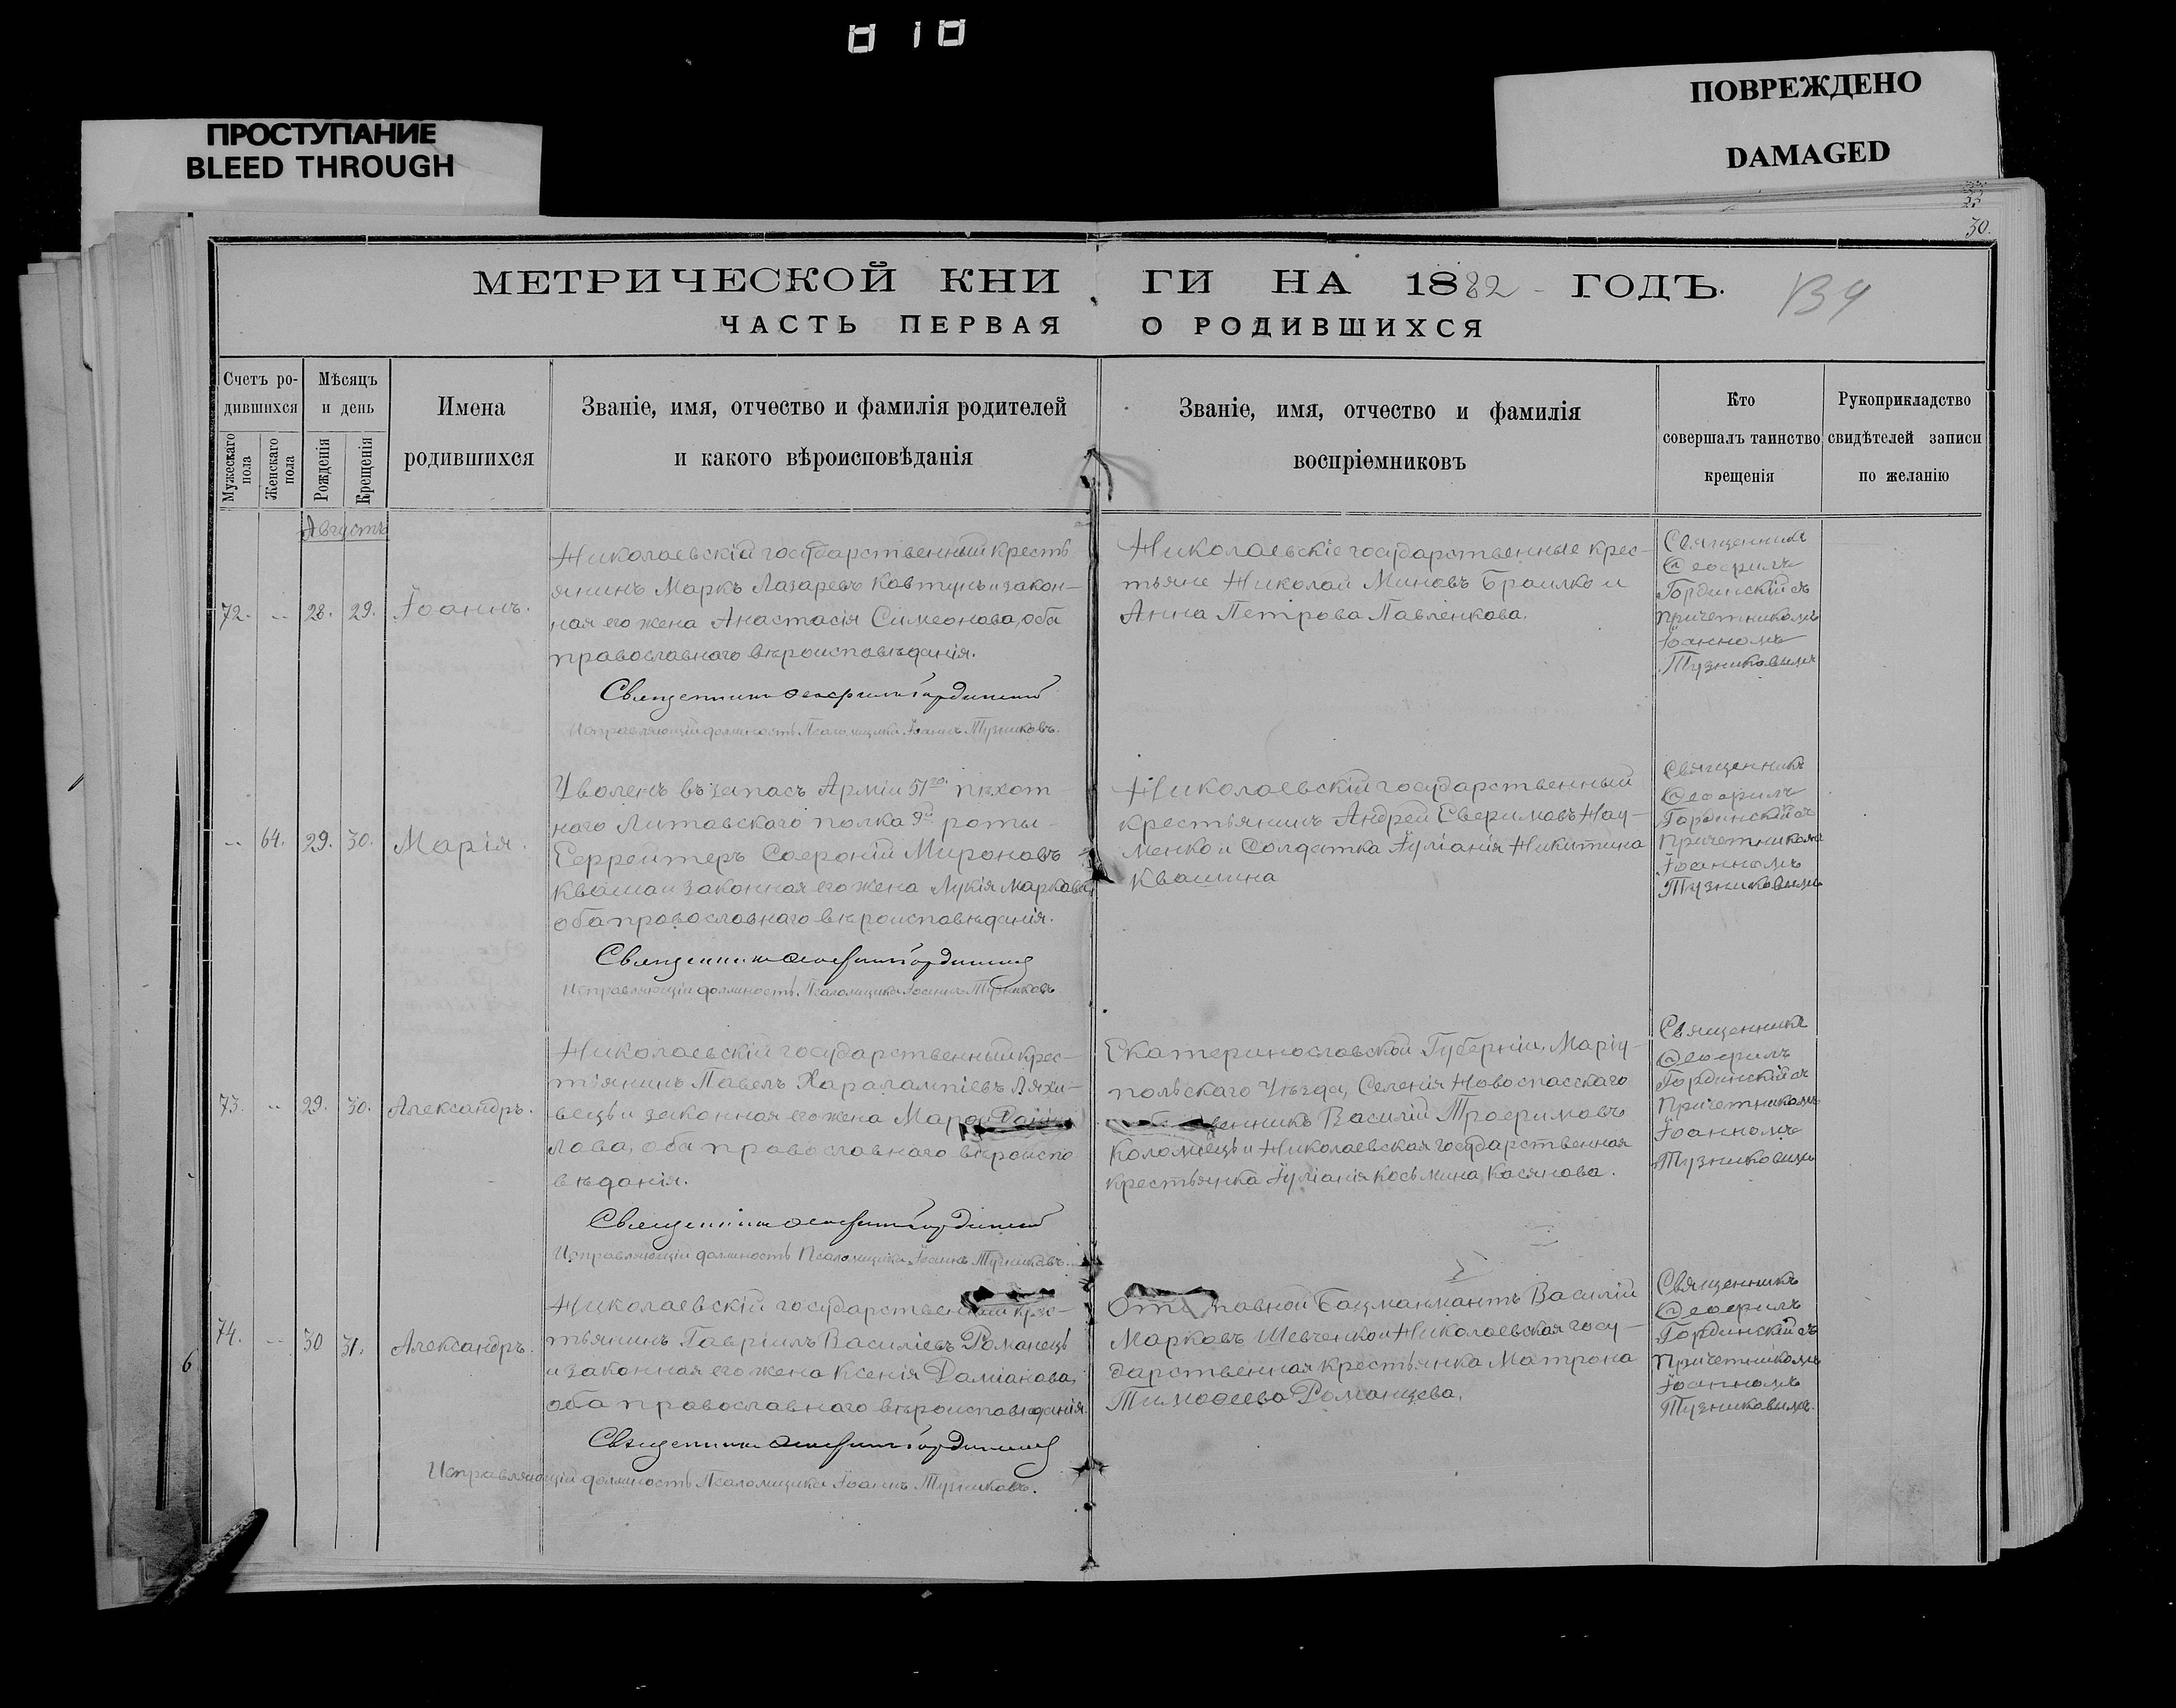 ПРОСТУПАНИЕ
BLEED THROUGH
ПОВРЕЖДЕНО
DAMAGED
30.
МЕТРИЧЕСКОЙ КНИ ГИ НА 1882 ГОДЪ.
В4
ЧАСТЬ ПЕРВАЯ О РОДИВШИХСЯ
Счетъ ро-
дившихся
Мужескаго пола
Женскаго пола
Мѣсяцъ
и день
Рожденія
Крещенія
Имена
родившихся
Званіе, имя, отчество и фамилія родителей
и какого вѣроисповѣданія
Званіе, имя, отчество и фамилія
воспріемниковъ
Кто
совершалъ таинство
крещенія
Рукоприкладство
свидѣтелей записи
по желанію
Августъ
72. -- 28. 29. Іоаннъ.
Николаевскій государственный кресть
янинъ Маркъ Лазаревъ Ковтунъ и закон-
ная его жена Анастасія Симеонова, оба
православнаго вѣроисповѣданія.
Священникъ Ѳеофилъ Гординскій
Исправляющій должность Псаломщика Іоаннъ Тузниковъ.
Николаевскіе государственные крес-
тьяне Николай Миновъ Браилко и
Анна Петрова Павленкова.
Священникъ
Ѳеофилъ
Гординскій съ
Причетникомъ
Іоанномъ
Тузниковымъ
-- 64. 29. 30. Марія.
Уволенъ въ запасъ Арміи 51го пѣхот-
наго Литовскаго полка 9й роты
Ефрейтеръ Софроній Мироновъ
Кваша и законная его жена Лукія Маркова
оба православнаго вѣроисповѣданія.
Священникъ Ѳеофилъ Гординскій
Исправляющій должность Псаломщика Іоаннъ Тузниковъ
Николаевскій государственный
крестьянинъ Андрей Евфимовъ Нау-
менко и Солдатка Іуліанія Никитина
Квашина
Священникъ
Ѳеофилъ
Гординскій съ
Причетникомъ
Іоанномъ
Тузниковымъ
73. -- 29. 30. Александръ.
Николаевскій государственный крес-
тьянинъ Павелъ Харалампіевъ Ляхи-
вецъ и законная его жена
лова, оба православнаго вѣроиспо
вѣданія.
Священникъ Ѳеофилъ Гординскій
Исправляющій должность Псаломщика Іоаннъ Тузниковъ.
Екатеринославской Губерніи, Маріу-
польскаго Уѣзда, Селенія Новоспасскаго
венникъ Василій Трофимовъ
Коломіецъ и Николаевская государственная
крестьянка Іуліанія Косьмина Касянова.
Священникъ
Ѳеофилъ
Гординскій съ
Причетникомъ
Іоанномъ
Тузниковымъ
74. -- 30 31. Александръ.
Николаевскій государственный крес-
тьянинъ Гавріилъ Василіевъ Романецъ
и законная его жена Ксенія Даміанова,
оба православнаго вѣроисповѣданія.
Священникъ Ѳеофилъ Гординскій
Исправляющій должность Псаломщика Іоаннъ Тузниковъ.
Отставной Боцманмантъ Василій
Марковъ Шевченко и Николаевская госу-
дарственная крестьянка Матрона
Тимоѳеева Романцева.
Священникъ
Ѳеофилъ
Гординскій съ
Причетникомъ
Іоанномъ
Тузниковымъ.
6